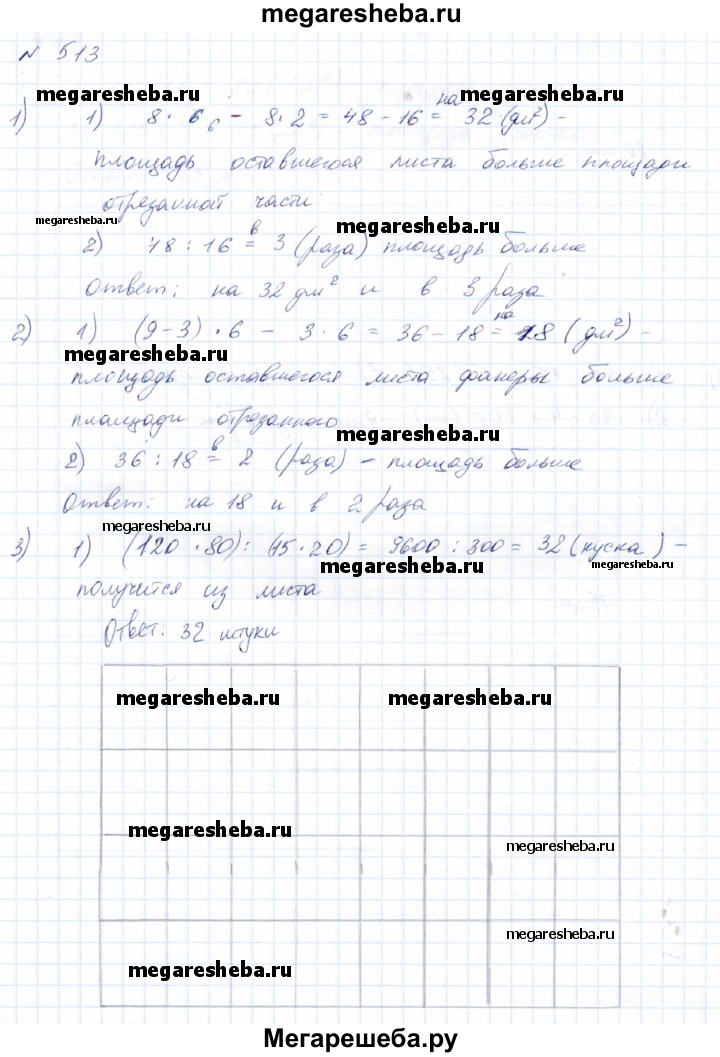 megaresheba.ru
№ 513
megaresheba.ru megaresheba.ru
1) 1) 8 · 6 6 - 8 · 2 = 48 - 16 = на 32 (дм²) -
площадь оставшегося листа больше площади
отрезанной части
megaresheba.ru megaresheba.ru
2) 48 : 16 = в 3 (раза) площадь больше
Ответ: на 32 дм² и в 3 раза
2) 1) (9-3) · 6 - 3 · 6 = 36 - 18 = на 18 (дм²) -
megaresheba.ru
площадь оставшегося листа фанеры больше
площади отрезанного
megaresheba.ru
2) 36 : 18 = в 2 (раза) - площадь больше
Ответ: на 18 и в 2 раза
megaresheba.ru
3) 1) (120 · 80) : (15 · 20) = 9600 : 300 = 32 (куска) -
megaresheba.ru megaresheba.ru
получится из листа
Ответ: 32 штуки
megaresheba.ru megaresheba.ru
megaresheba.ru
megaresheba.ru
megaresheba.ru
megaresheba.ru
Мегарешеба.ру